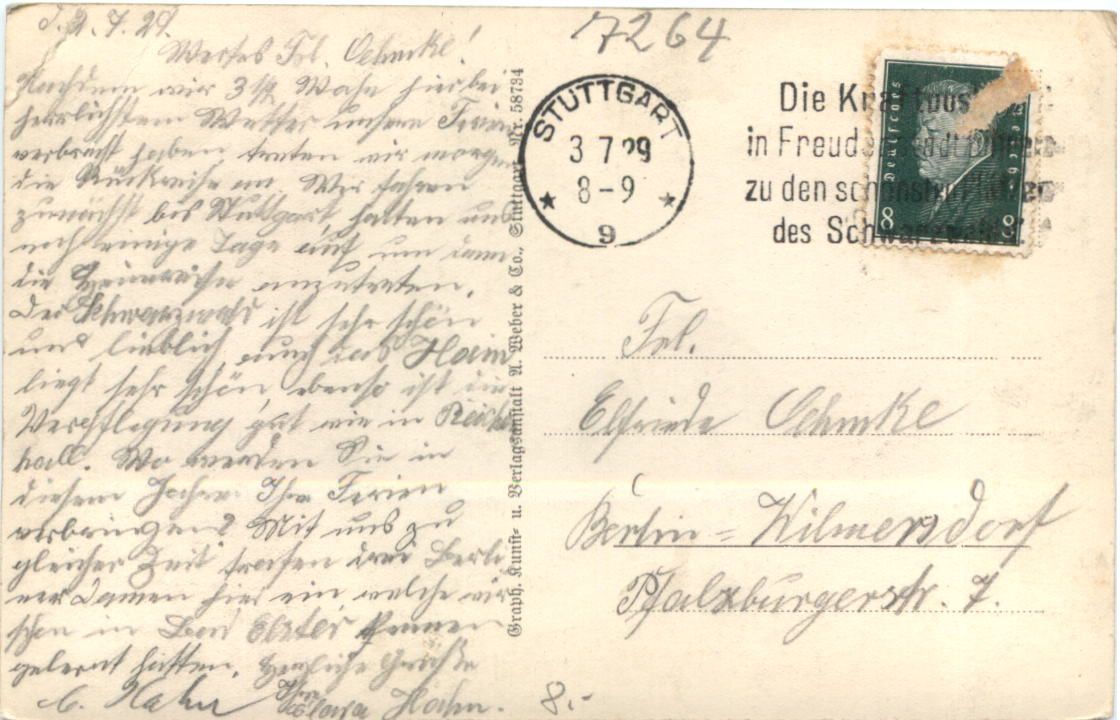 d. 2.7.29.
Wertes Frl. Oehmke!
Nachdem wir 3 1/2 Woche hier bei
herrlichstem Wetter unsere Ferien
verbracht haben treten wir morgen
die Rückreise an. Wir fahren
zunächst bis Stuttgart, halten uns
noch einige Tage auf um dann
die Heimreise anzutreten.
Der Schwarzwald ist sehr schön
und lieblich, auch das Heim
liegt sehr schön, ebenso ist die
Verpflegung gut wie in Reichen
hall. Wo werden Sie in
diesem Jahre Ihre Ferien
verbringen? Mit uns zu
gleicher Zeit trafen drei Berli
ner Damen hier ein, welche wir
schon in Bad Elster kennen
gelernt hatten. Herzliche Grüße
C. Hahn Ihre Clara Hahn.
7264
STUTTGART
3 7 29
8-9
9
Die Kraftpost
in Freudenstadt
zu den schönsten
des Schwarzwaldes
Deutsches Reich
8 8
Graph. Kunst- u. Verlagsanstalt A. Weber & Co., Stuttgart Nr. 58734
Frl.
Elfriede Oehmke
Berlin=Wilmersdorf
Pfalzburgerstr. 7.
8.-